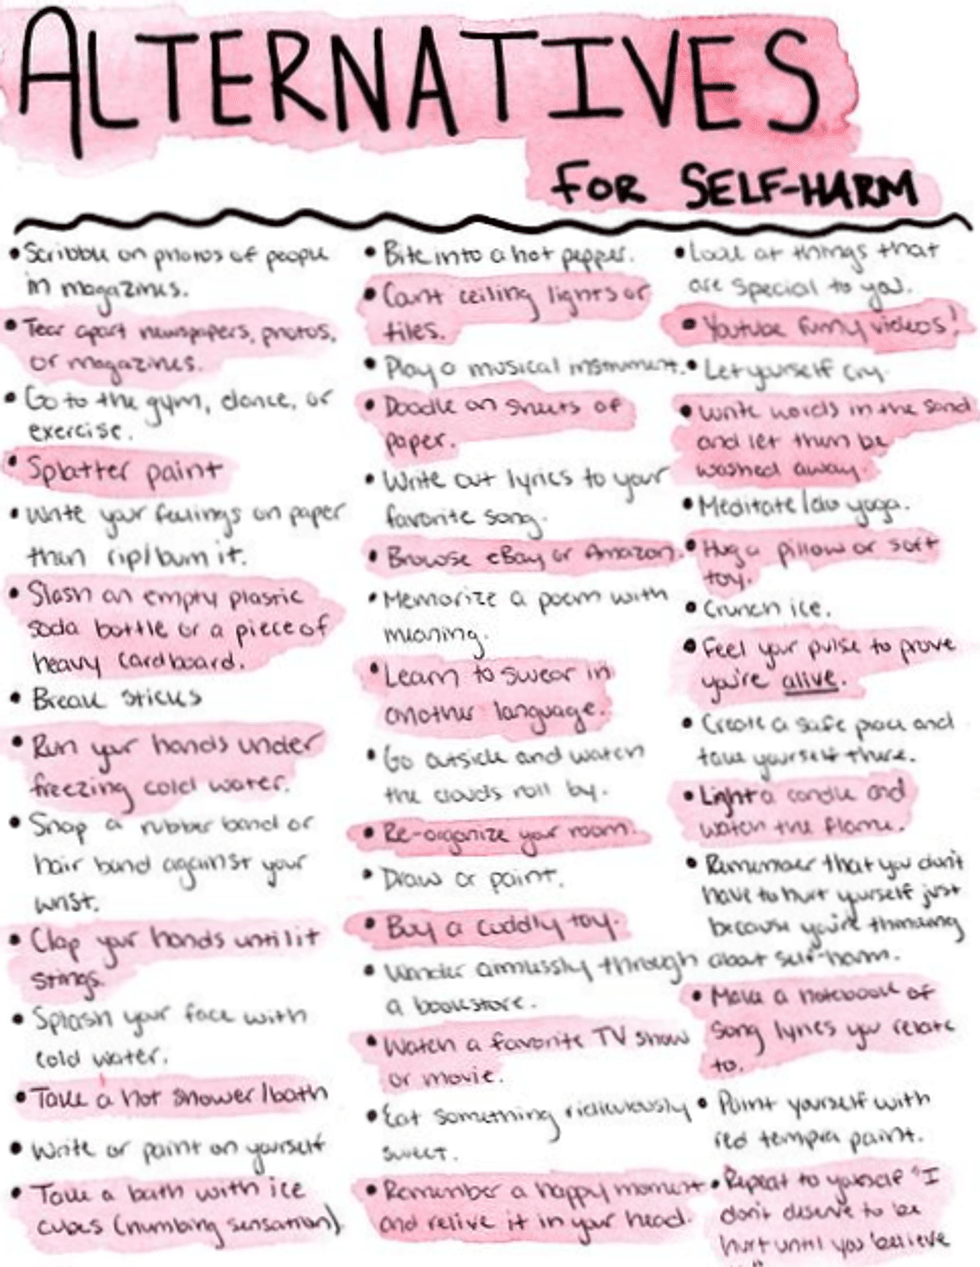 ALTERNATIVES
FOR SELF-HARM
• Scribble on photos of people
in magazines.
• Tear apart newspapers, photos,
or magazines.
• Go to the gym, dance, or
exercise.
• Splatter paint
• Write your feelings on paper
then rip/burn it.
• Slash an empty plastic
soda bottle or a piece of
heavy cardboard.
• Break sticks
• Run your hands under
freezing cold water.
• Snap a rubber band or
hair band against your
wrist.
• Clap your hands until it
stings.
• Splash your face with
cold water.
• Take a hot shower/bath
• Write or paint on yourself
• Take a bath with ice
cubes (numbing sensation)
• Bite into a hot pepper.
• Count ceiling lights or
tiles.
• Play a musical instrument.
• Doodle on sheets of
paper.
• Write out lyrics to your
favorite song.
• Browse eBay or Amazon.
• Memorize a poem with
meaning.
• Learn to swear in
another language.
• Go outside and watch
the clouds roll by.
• Re-organize your room.
• Draw or paint.
• Buy a cuddly toy.
• Wander aimlessly through
a bookstore.
• Watch a favorite TV show
or movie.
• Eat something ridiculously
sweet.
• Remember a happy moment
and relive it in your head.
• Look at things that
are special to you.
• Youtube funny videos!
• Let yourself cry.
• Write words in the sand
and let them be
washed away.
• Meditate/do yoga.
• Hug a pillow or soft
toy.
• Crunch ice.
• Feel your pulse to prove
you're alive.
• Create a safe place and
take yourself there.
• Light a candle and
watch the flame.
• Remember that you don't
have to hurt yourself just
because you're thinking
about self-harm.
• Make a notebook of
song lyrics you relate
to.
• Paint yourself with
red tempra paint.
• Repeat to yourself "I
don't deserve to be
hurt until you believe